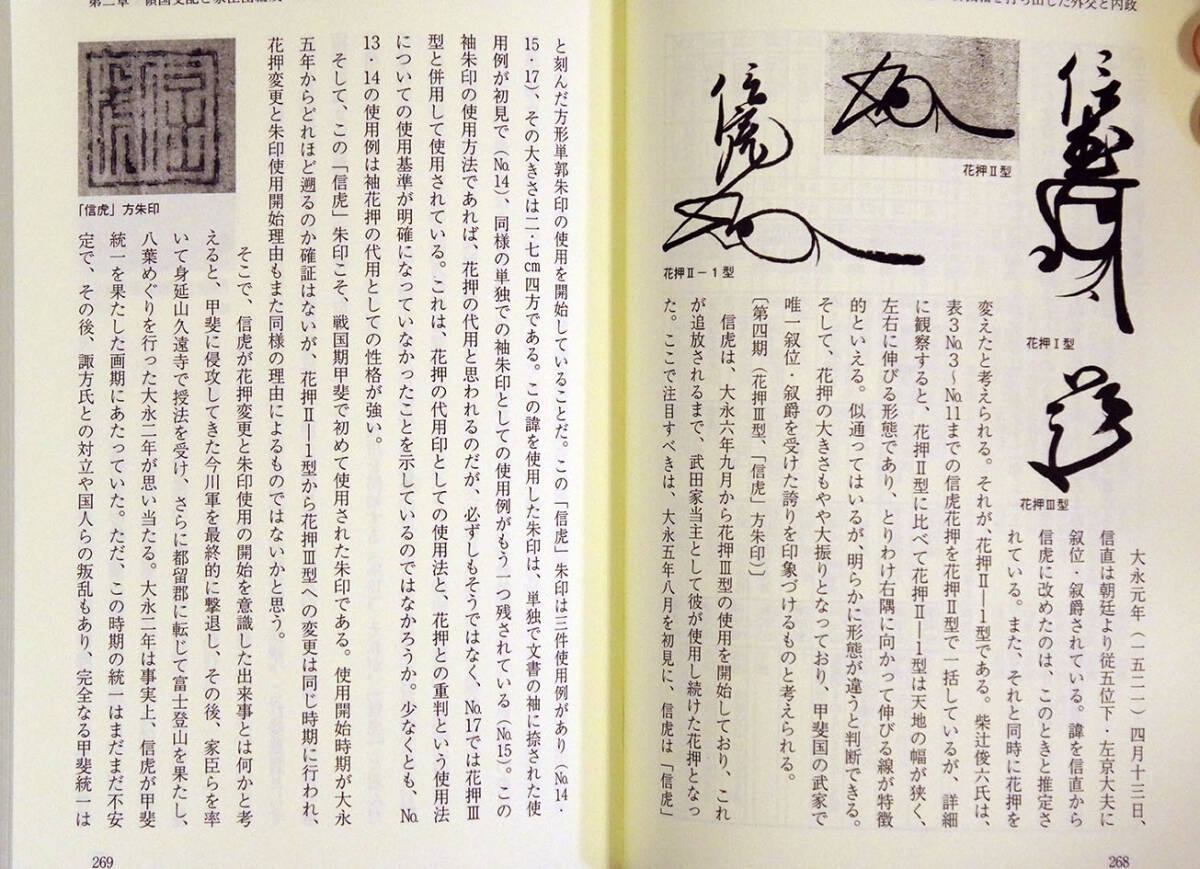 を打ち出した外交と内政
花押Ⅰ型
花押Ⅱ型
花押Ⅱ－1型
花押Ⅲ型
大永元年（一五二一）四月十三日、
信直は朝廷より従五位下・左京大夫に
叙位・叙爵されている。諱を信直から
信虎に改めたのは、このときと推定さ
れている。また、それと同時に花押を
変えたと考えられる。それが、花押Ⅱ―1型である。柴辻俊六氏は、
表3№3～№11までの信虎花押を花押Ⅱ型で一括しているが、詳細
に観察すると、花押Ⅱ型に比べて花押Ⅱ―1型は天地の幅が狭く、
左右に伸びる形態であり、とりわけ右隅に向かって伸びる線が特徴
的といえる。似通ってはいるが、明らかに形態が違うと判断できる。
そして、花押の大きさもやや大振りとなっており、甲斐国の武家で
唯一叙位・叙爵を受けた誇りを印象づけるものと考えられる。
〔第四期（花押Ⅲ型、「信虎」方朱印）〕
信虎は、大永六年九月から花押Ⅲ型の使用を開始しており、これ
が追放されるまで、武田家当主として彼が使用し続けた花押となっ
た。ここで注目すべきは、大永五年八月を初見に、信虎は「信虎」
268
と刻んだ方形単郭朱印の使用を開始していることだ。この「信虎」朱印は三件使用例があり（№14・
15・17）、その大きさは二・七cm四方である。この諱を使用した朱印は、単独で文書の袖に捺された使
用例が初見で（№14）、同様の単独での袖朱印としての使用例がもう一つ残されている（№15）。この
袖朱印の使用方法であれば、花押の代用と思われるのだが、必ずしもそうではなく、№17では花押Ⅲ
型と併用して使用されている。これは、花押の代用印としての使用法と、花押との重判という使用法
についての使用基準が明確になっていなかったことを示しているのではなかろうか。少なくとも、№
13・14の使用例は袖花押の代用としての性格が強い。
そして、この「信虎」朱印こそ、戦国期甲斐で初めて使用された朱印である。使用開始時期が大永
五年からどれほど遡るのか確証はないが、花押Ⅱ―1型から花押Ⅲ型への変更は同じ時期に行われ、
花押変更と朱印使用開始理由もまた同様の理由によるものではないかと思う。
「信虎」方朱印
そこで、信虎が花押変更と朱印使用の開始を意識した出来事とは何かと考
えると、甲斐に侵攻してきた今川軍を最終的に撃退し、その後、家臣らを率
いて身延山久遠寺で授法を受け、さらに都留郡に転じて富士登山を果たし、
八葉めぐりを行った大永二年が思い当たる。大永二年は事実上、信虎が甲斐
統一を果たした画期にあたっていた。ただ、この時期の統一はまだまだ不安
定で、その後、諏方氏との対立や国人らの叛乱もあり、完全なる甲斐統一は
269